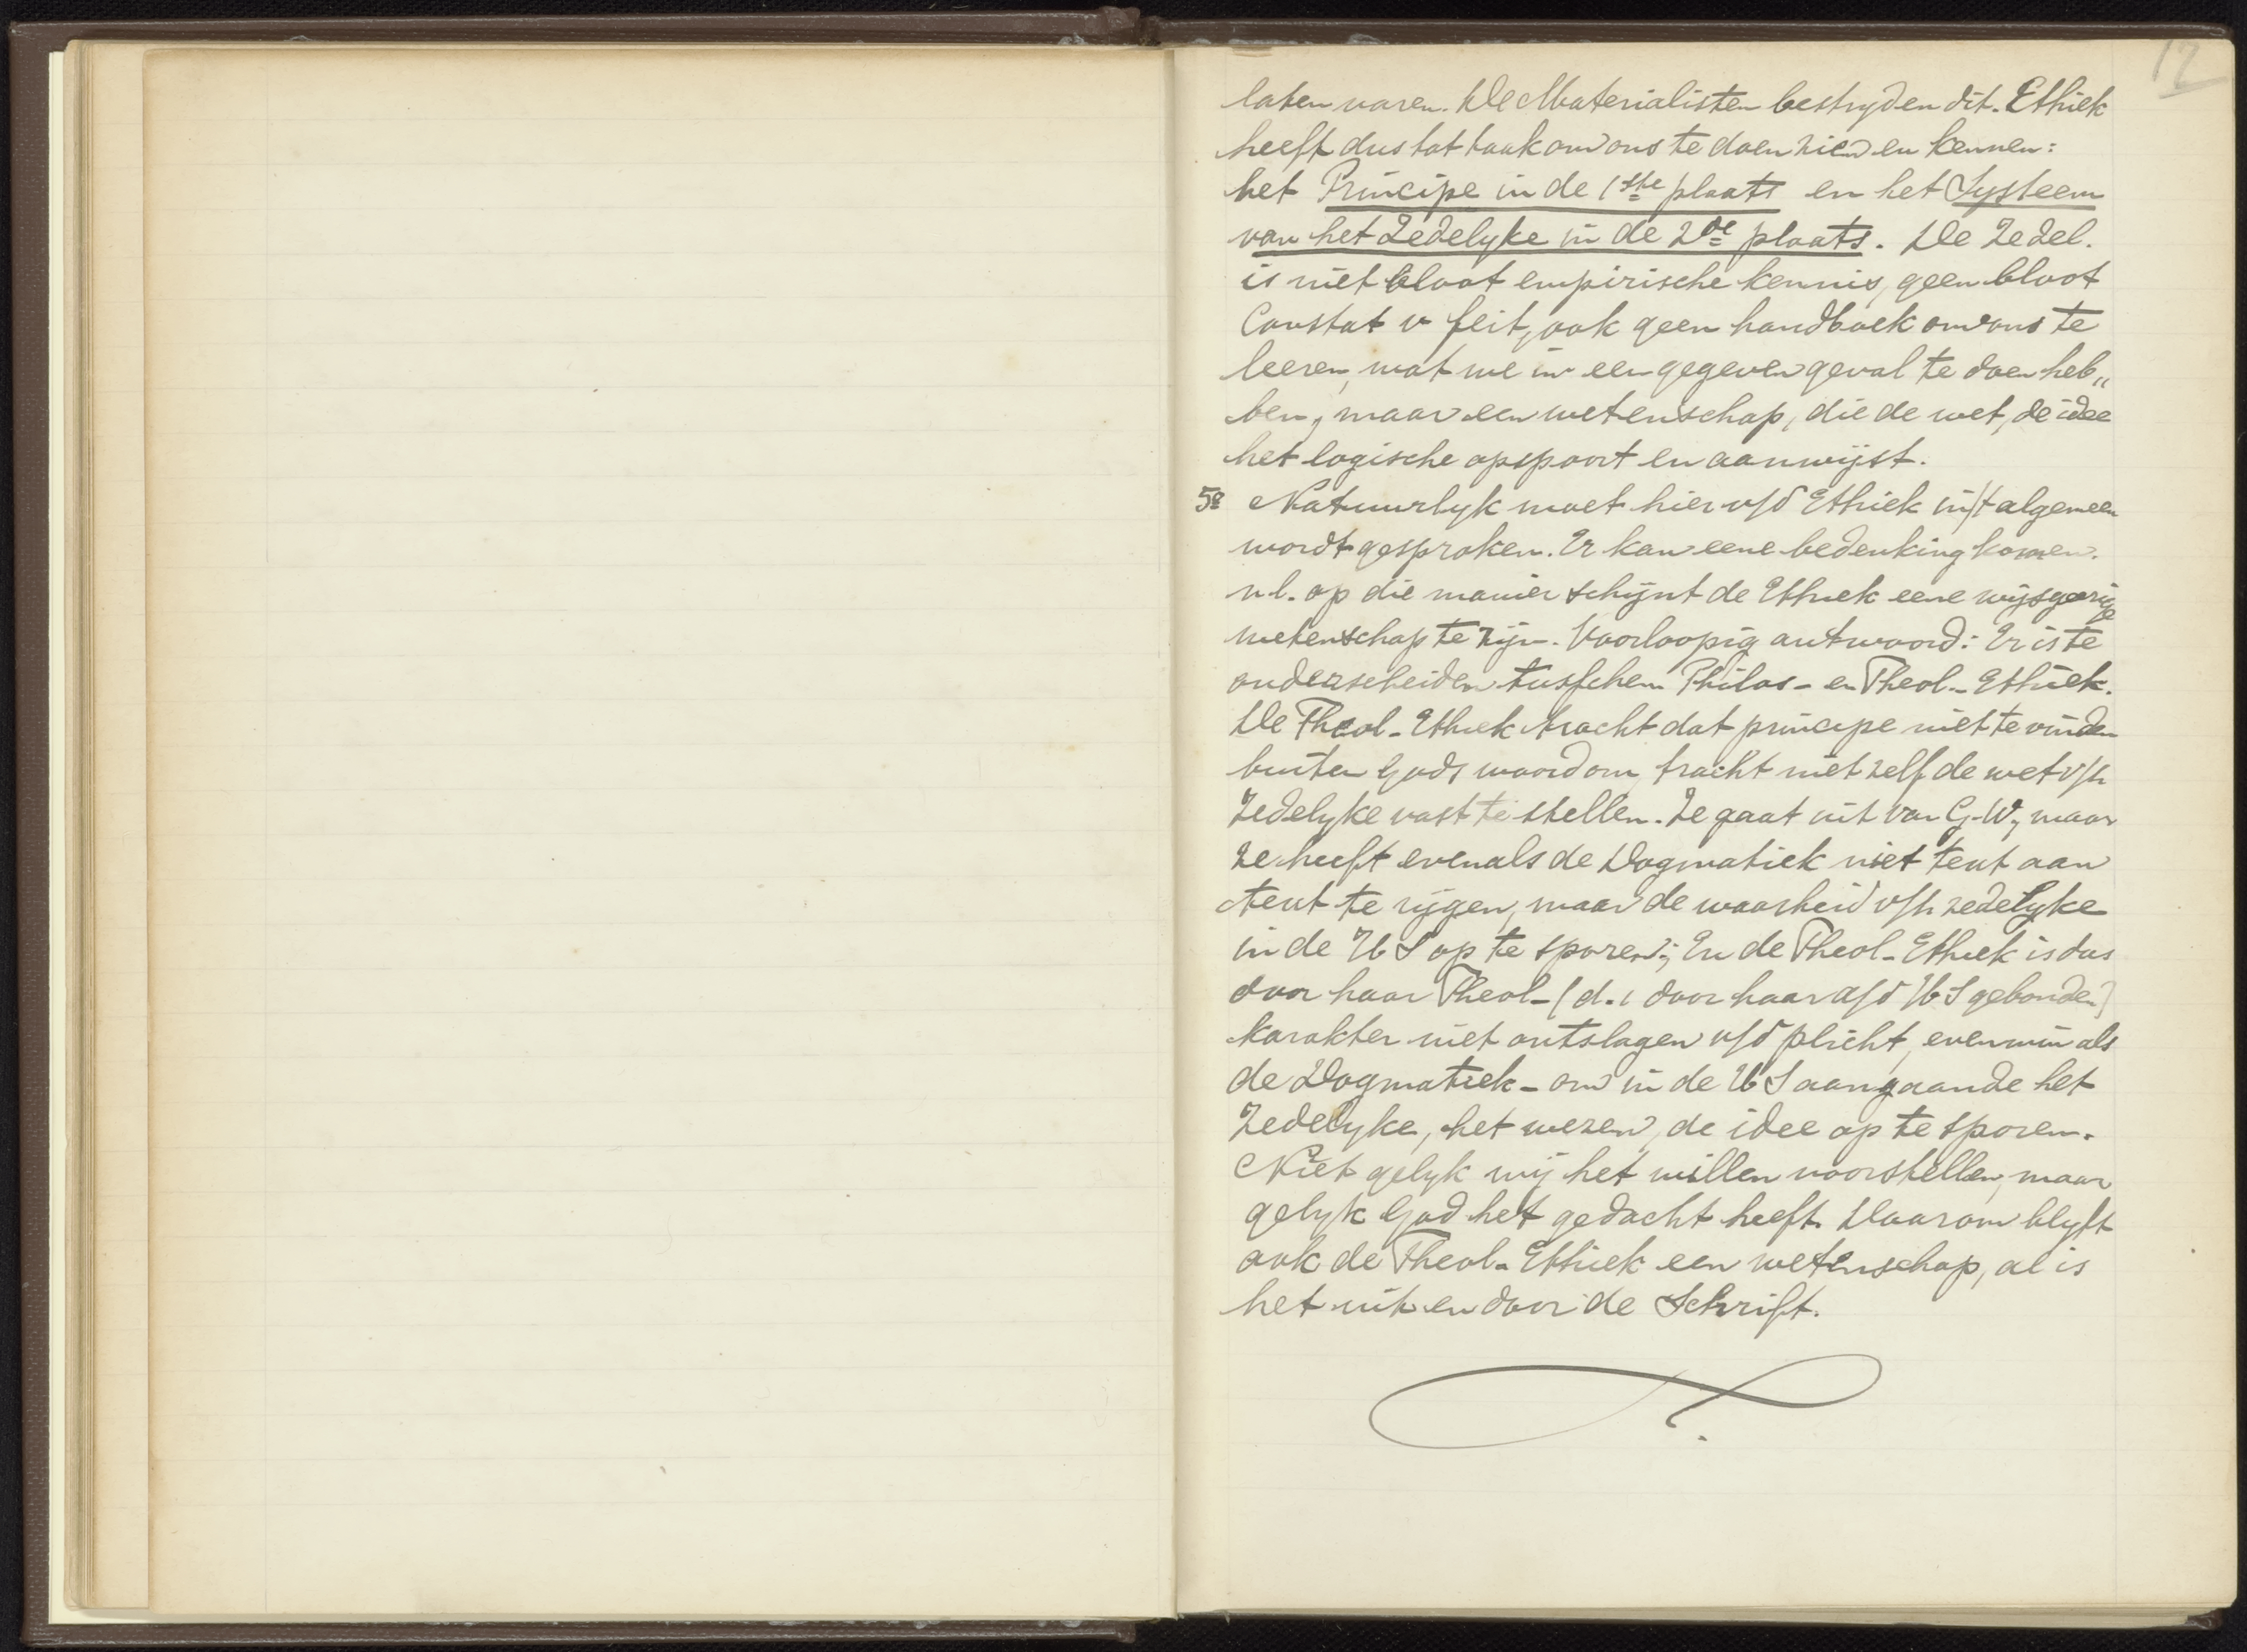 12
laten varen. De Materialisten bestryden dit. Ethiek
heeft dus tot taak om ons te doen zien en kennen:
het Principe in de 1ste plaats en het Systeem
van het Zedelyke in de 2de plaats. De Zedel.
is niet bloot empirische kennis, geen bloot
Constat v feit, ook geen handboek om ons te
leeren, wat we in een gegeven geval te doen heb„
ben, maar een wetenschap, die de wet, de idee
het logische opspoort en aanwijst.
5º Natuurlyk moet hier v/d Ethiek in/t algemeen
wordt gesproken. Er kan eene bedenking komen.
n.l. op die manier schijnt de Ethiek eene wijsgeerige
wetenschap te zijn. Voorloopig antwoord: Er is te
onderscheiden tusschen Philos- en Theol- Ethiek.
De Theol- Ethiek tracht dat principe niet te vinden
buiten Gods woord om, tracht niet zelf de wet v/h
Zedelyke vast te stellen. Ze gaat uit van G.W, maar
ze heeft evenals de Dogmatiek niet text aan
text te rijgen, maar de waarheid v/h zedelyke
in de H S op te sporen; En de Theol- Ethiek is dus
door haar Theol- (d.i door haar a/d H S gebonden)
karakter niet ontslagen v/d plicht, evenmin als
de Dogmatiek - om in de H S aangaande het
Zedelyke, het wezen, de idee op te sporen.
Niet gelyk wij het willen voorstellen, maar
gelyk God het gedacht heeft. Daarom blyft
ook de Theol- Ethiek een wetenschap, al is
het uit en door de Schrift.